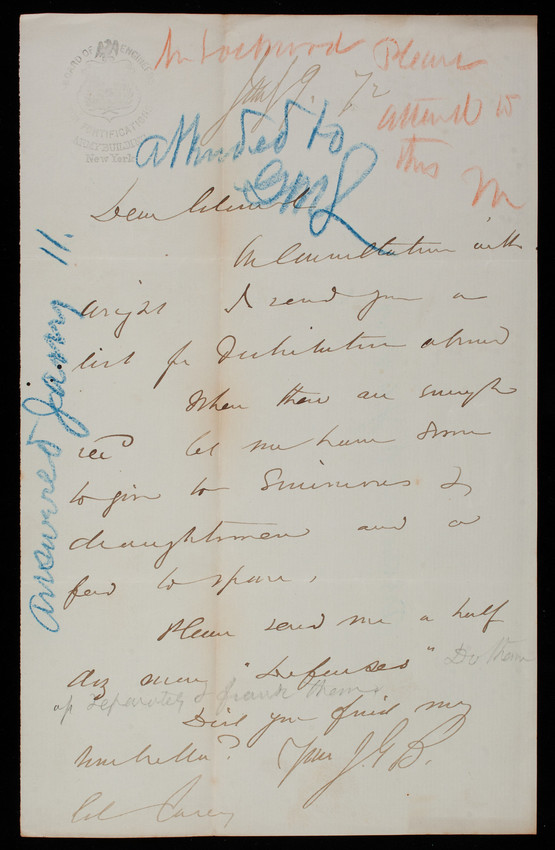 BOARD OF ENGINEERS
FORTIFICATION
ARMY BUILDING
New York
Mr Lockwood Please
attend to
this M
Jany 9. 72
attended to
GML
answered Jany 11.
Dear Colonel
In Consultation with
Wright I send you a
list for Distribution abroad
When there are enough
recd let me have some
to give to Simmons &
draughtsmen and a
few to spare.
Please send me a half
doz more "Defenses" Do them
up separately & frank them.
Did you find my
umbrella? Yours J.G.B.
Col Casey